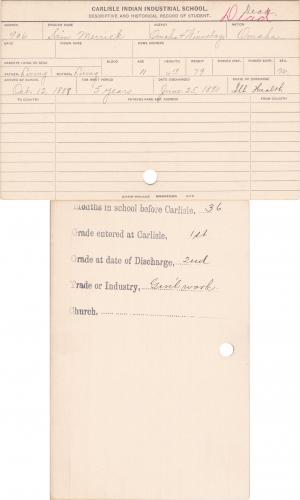 CARLISLE INDIAN INDUSTRIAL SCHOOL.
DESCRIPTIVE AND HISTORICAL RECORD OF STUDENT.
Dead
Died
NUMBER ENGLISH NAME AGENCY NATION
906 Merrick Omaha & Winnebago Omaha
BAND INDIAN NAME HOME ADDRESS
PARENTS LIVING OR DEAD BLOOD AGE HEIGHT WEIGHT FORCED INSP. FORCED EXPR. SEX.
FATHER, Living MOTHER, Living 11 79 M.
ARRIVED AT SCHOOL FOR WHAT PERIOD DATE DISCHARGED CAUSE OF DISCHARGE
Oct. 12, 1888 5 years June 25, 1890 Ill Health
TO COUNTRY PATRONS NAME AND ADDRESS FROM COUNTRY
Months in school before Carlisle, 36
Grade entered at Carlisle, 1st
Grade at date of Discharge, 2nd
Trade or Industry, Genl work
Church.